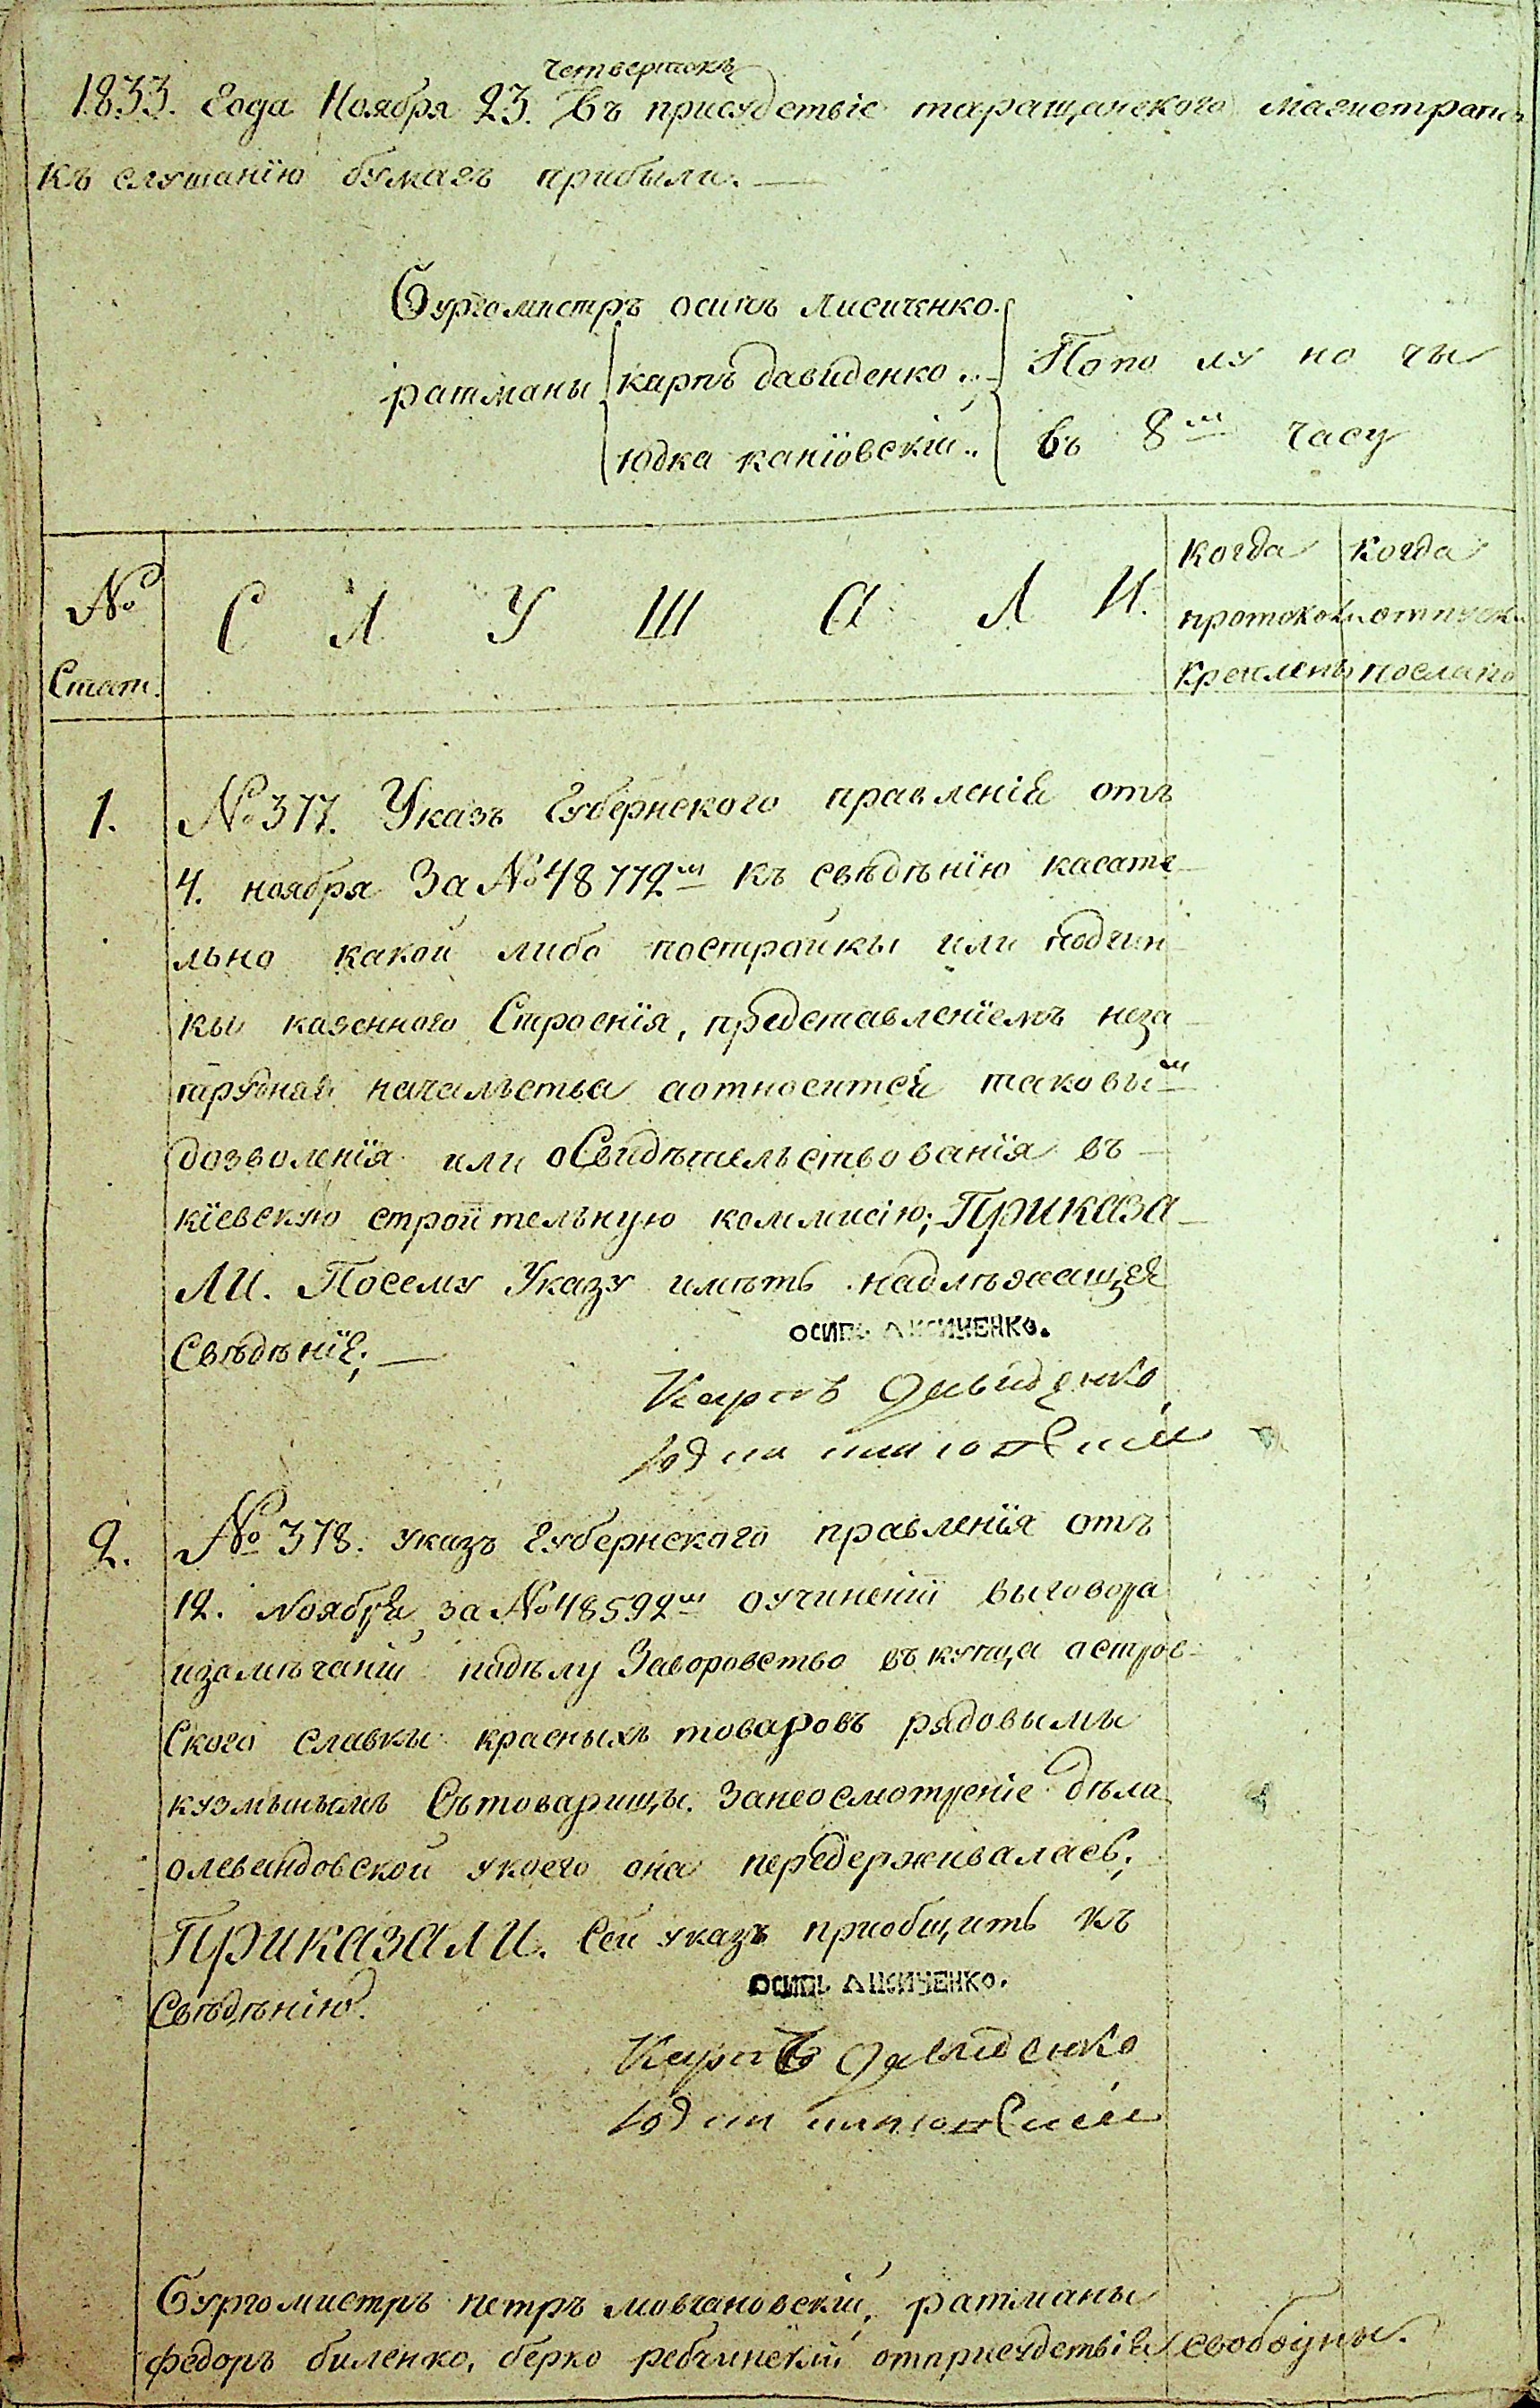 четвертокъ
1833. Года Ноября 23. Въ присудствіе таращанского магистрата
къ слушанїю бумагъ прибыли. —
Бургомистръ осипъ Лисиченко.
ратманы карпъ давиденко.
юдка канїовскій.
По по лу но чы
въ 8м часу
№ Стат.
С Л У Ш А Л И.
когда протокол. крепленъ
когда отпуск. послано
1.
№ 377. Указъ Губернского правленія отъ
4. ноября За № 48772м къ свѣдѣнїю касате
льно какой либо постройкы или подчин
кы казенного Строенїя, представленїемъ неза
трудняя начальства аотноситея таковым
дозволенїя или оСвидѣтельствованїя въ
кїевскую строительную коммисїю; Приказа
ли. Посему Указу имѣть надлѣжащея
Свѣдѣнїе; —
осипъ лисиченко.
Карпъ Давиденко
2.
№ 378. указъ Губернского правленїя отъ
12. Ноября за № 48592м оучиненїи выговора
изамѣчанїи подѣлу Заворовство въ купца остров
Ского славкы красныхъ товаровъ рядовымы
кузмынымъ Сътоварищы. Занеосмотренїе дѣла
олевандовской укоего она передерживалась;
Приказали. Сей указъ приобщить къ
Свѣдѣнїю.
осипъ лисиченко.
Карпъ Давиденко
Бургомистръ петръ мовчановскїй, ратманы
федоръ биленко, берко ребчинскїй отприсудствїя свободны.